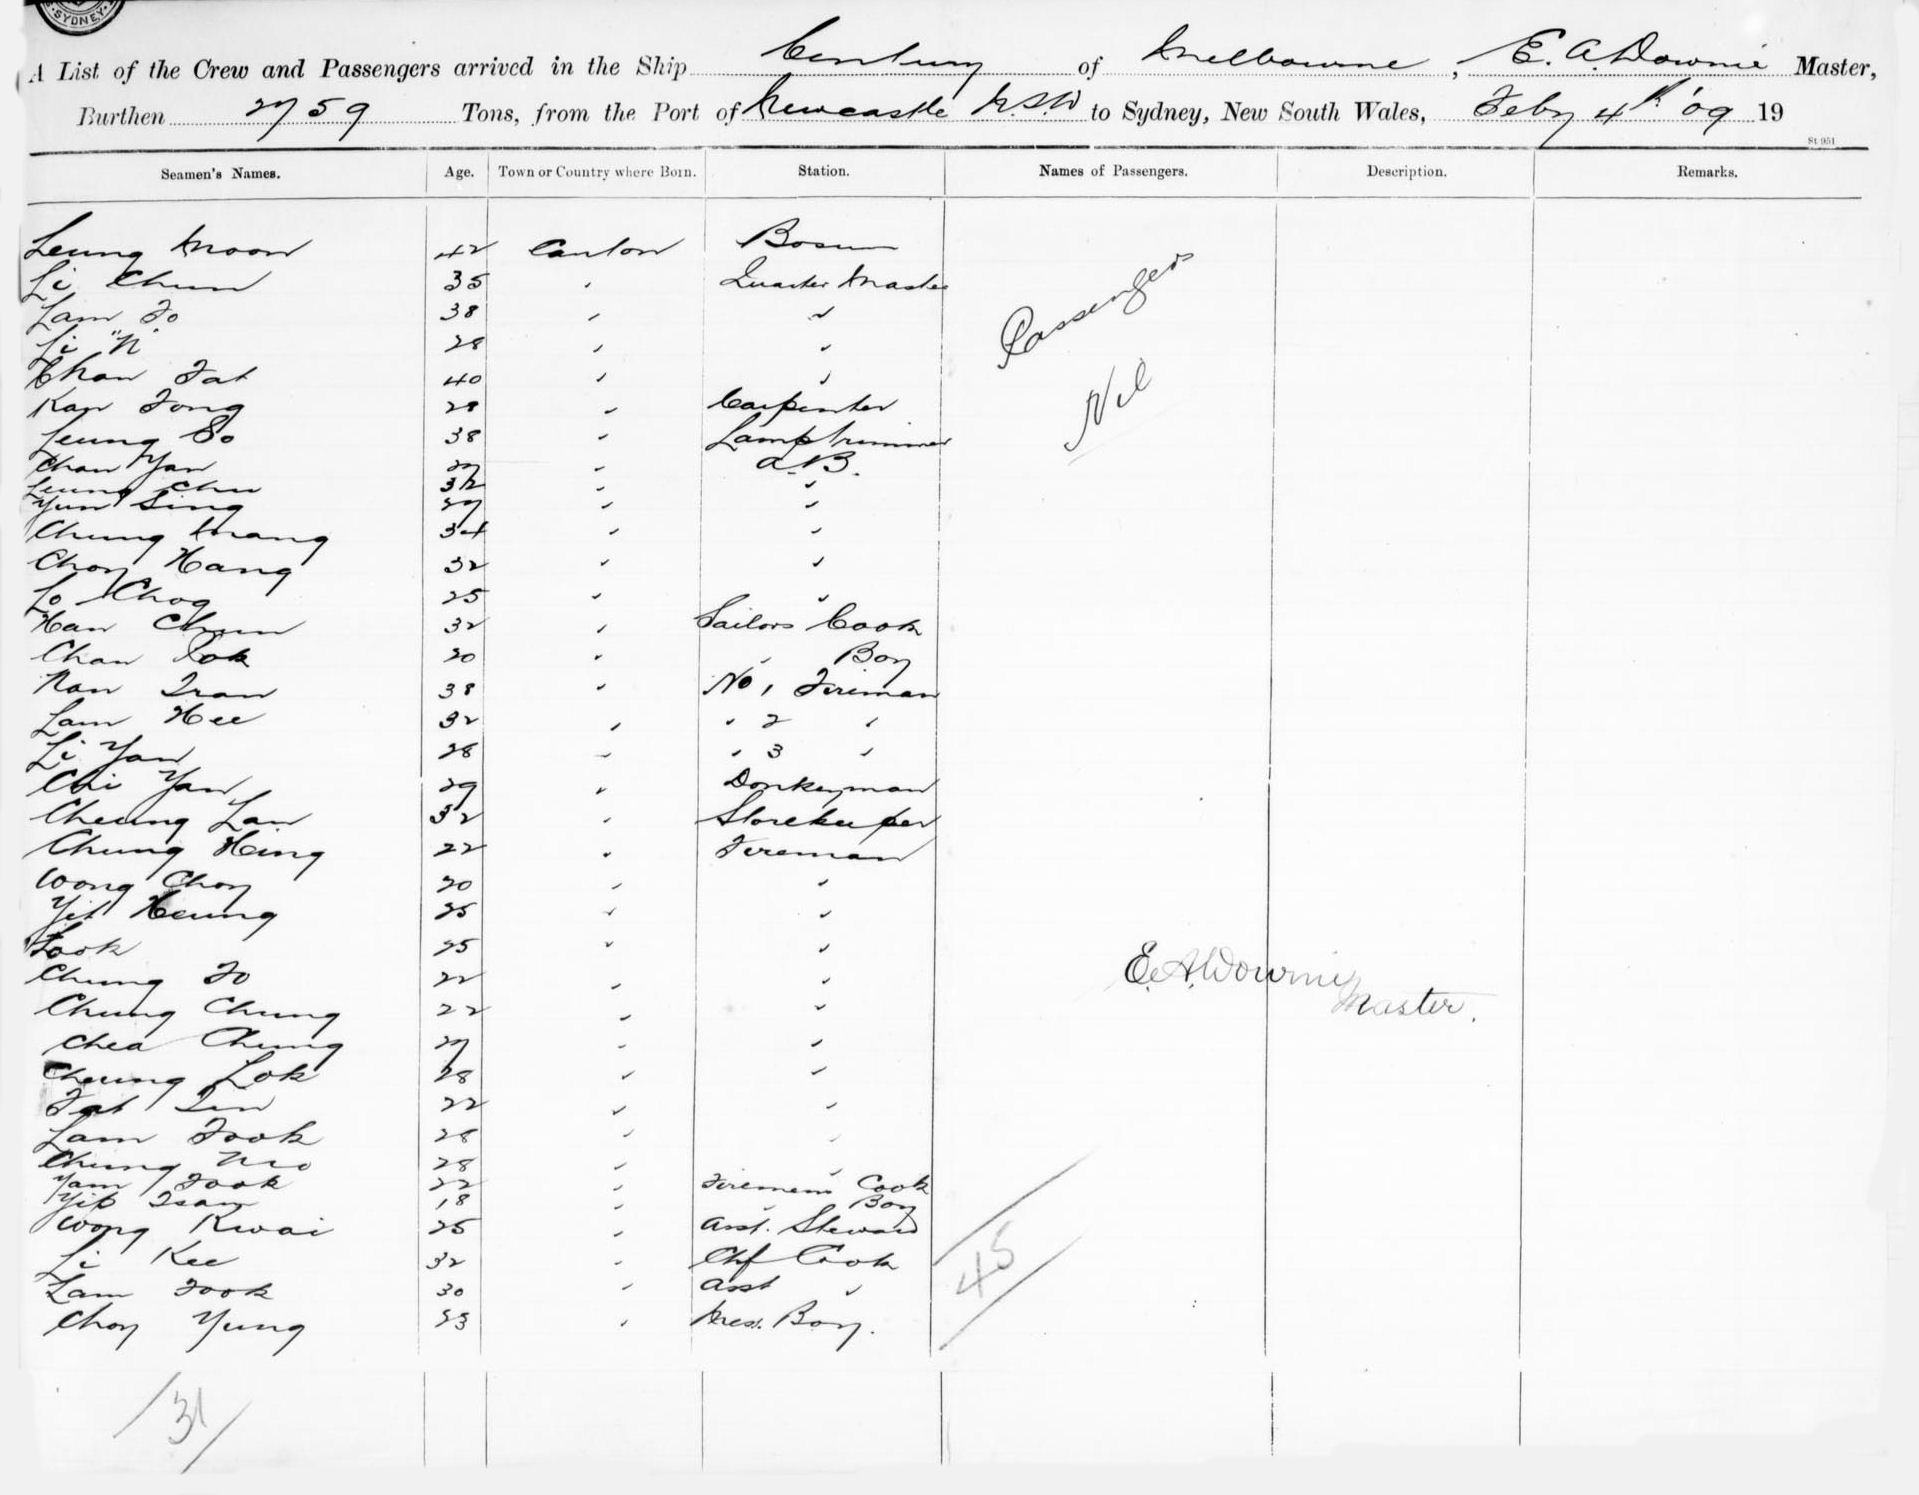 SYDNEY
A List of the Crew and Passengers arrived in the Ship Century of Melbourne, E. A. Downie Master,
Burthen 2759 Tons, from the Port of Newcastle N.S.W to Sydney, New South Wales, Feby 4th '09 19
St 951
Seamen's Names. Age. Town or Country where Born. Station. Names of Passengers. Description. Remarks.
Leung Moon 42 Canton Bosun
Li Chun 35 " Quarter Master
Lam To 38 " "
Li "N" 28 " "
Chan Fat 40 " "
Kan Fong 29 " Carpenter
Leung So 38 " Lamptrimmer
Chan Yan 27 " A.B.
Leung Chu 32 " "
Yun Sing 27 " "
Chung Mang 34 " "
Choy Hang 32 " "
Lo Chog 25 " "
Han Chun 32 " Sailors Cook
Chan Lok 20 " " Boy
Nan Tran 38 " No 1 Fireman
Lam Hee 32 " " 2 "
Li Yan 28 " " 3 "
Chi Yan 29 " Donkeyman
Cheung Lan 32 " Storekeeper
Chung Hing 22 " Fireman
Wong Choy 20 " "
Yit Heung 25 " "
Fook 25 " "
Chung Fo 22 " "
Chung Chung 22 " "
Chea Chung 27 " "
Cheung Lok 28 " "
Fat Tin 22 " "
Lam Fook 28 " "
Chung 28 " "
Yam Fook 22 " Firemens Cook
Yip Tsan 18 " " Boy
Wong Kwai 25 " Asst. Steward
Li Kee 32 " Chf Cook
Lam Fook 30 " Asst "
Choy Yung 23 " Mess. Boy.
Passengers
Nil
E. A. Downie
Master.
45
31